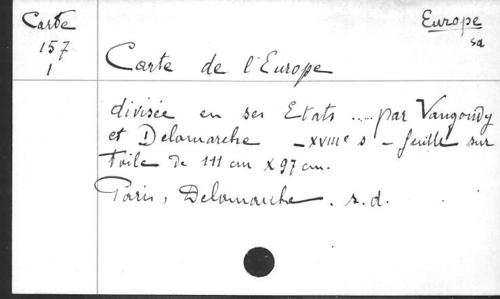 Carte
157
1
Europe
sa
Carte de l'Europe
divisée en ses Etats ..... par Vaugondy
et Delamarche _ XVIIIe s _ feuille sur
toile de 111 cm x 97 cm.
Paris, Delamarche. s.d.